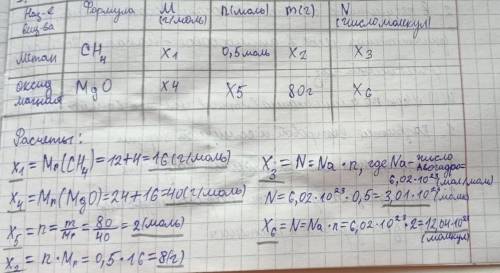 Наз-е вещ-ва | Формула | M (г/моль) | n(моль) | m(г) | N (число молекул)
Метан | CH4 | X1 | 0,5 моль | X2 | X3
оксид магния | MgO | X4 | X5 | 80г | X6
Расчеты:
X1 = Mr(CH4) = 12+4 = 16(г/моль)
X4 = Mr(MgO) = 24+16 = 40(г/моль)
X5 = n = m/Mr = 80/40 = 2(моль)
X2 = n · Mr = 0,5 · 16 = 8(г)
X3 = N = Na · n, где Na - число Авогадро = 6,02·10²³ (мол/моль)
N = 6,02·10²³ · 0,5 = 3,01·10²³
X6 = N = Na · n = 6,02·10²³ · 2 = 12,04·10²³ (молкул)